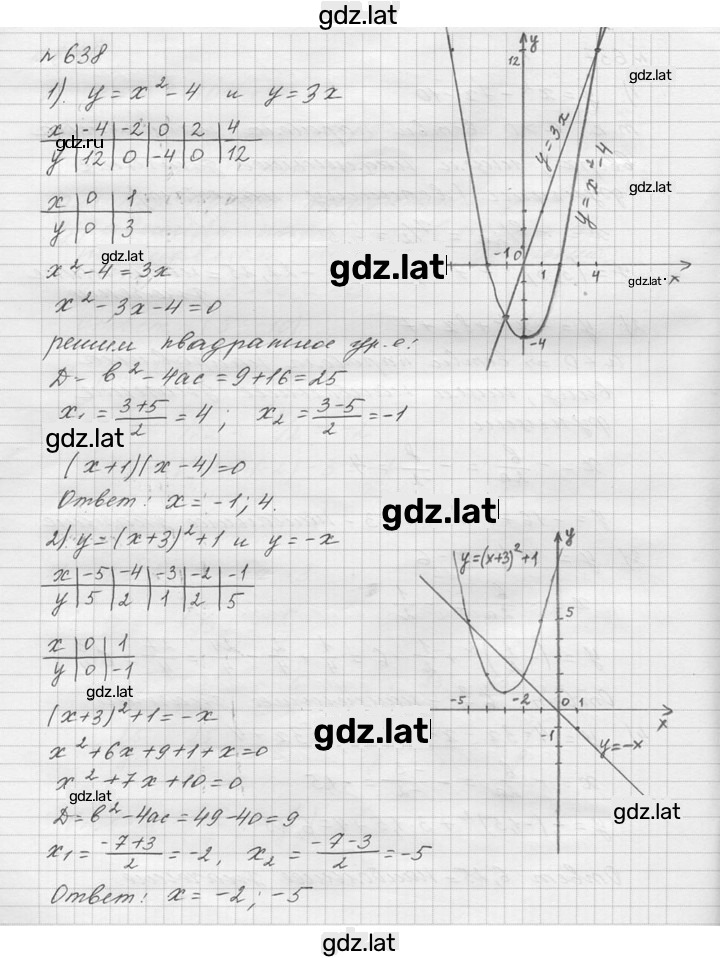 gdz.lat
№ 638
1). y = x² - 4 и y = 3x
x | -4 | -2 | 0 | 2 | 4
gdz.ru
y | 12 | 0 | -4 | 0 | 12
x | 0 | 1
y | 0 | 3
gdz.lat
x² - 4 = 3x
x² - 3x - 4 = 0
решим квадратное ур-е:
D = b² - 4ac = 9 + 16 = 25
x₁ = (3+5)/2 = 4 ; x₂ = (3-5)/2 = -1
gdz.lat
(x + 1)(x - 4) = 0
Ответ: x = -1; 4.
12 y
gdz.lat
y = 3x
y = x² - 4
gdz.lat
-1 0 1 4 x
gdz.lat
gdz.lat
-4
gdz.lat
2). y = (x+3)² + 1 и y = -x
x | -5 | -4 | -3 | -2 | -1
y | 5 | 2 | 1 | 2 | 5
x | 0 | 1
y | 0 | -1
gdz.lat
(x+3)² + 1 = -x
x² + 6x + 9 + 1 + x = 0
x² + 7x + 10 = 0
gdz.lat
D = b² - 4ac = 49 - 40 = 9
x₁ = (-7+3)/2 = -2, x₂ = (-7-3)/2 = -5
Ответ: x = -2; -5
y
y = (x+3)² + 1
5
-5 -2 0 1 x
-1
y = -x
gdz.lat
gdz.lat
gdz.lat